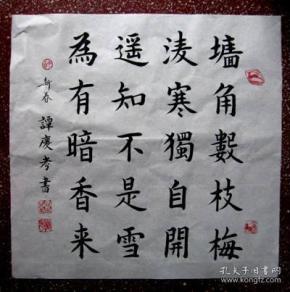 墙角數枝梅
凌寒獨自開
遥知不是雪
為有暗香来
新春 譚慶孝書
孔夫子旧书网